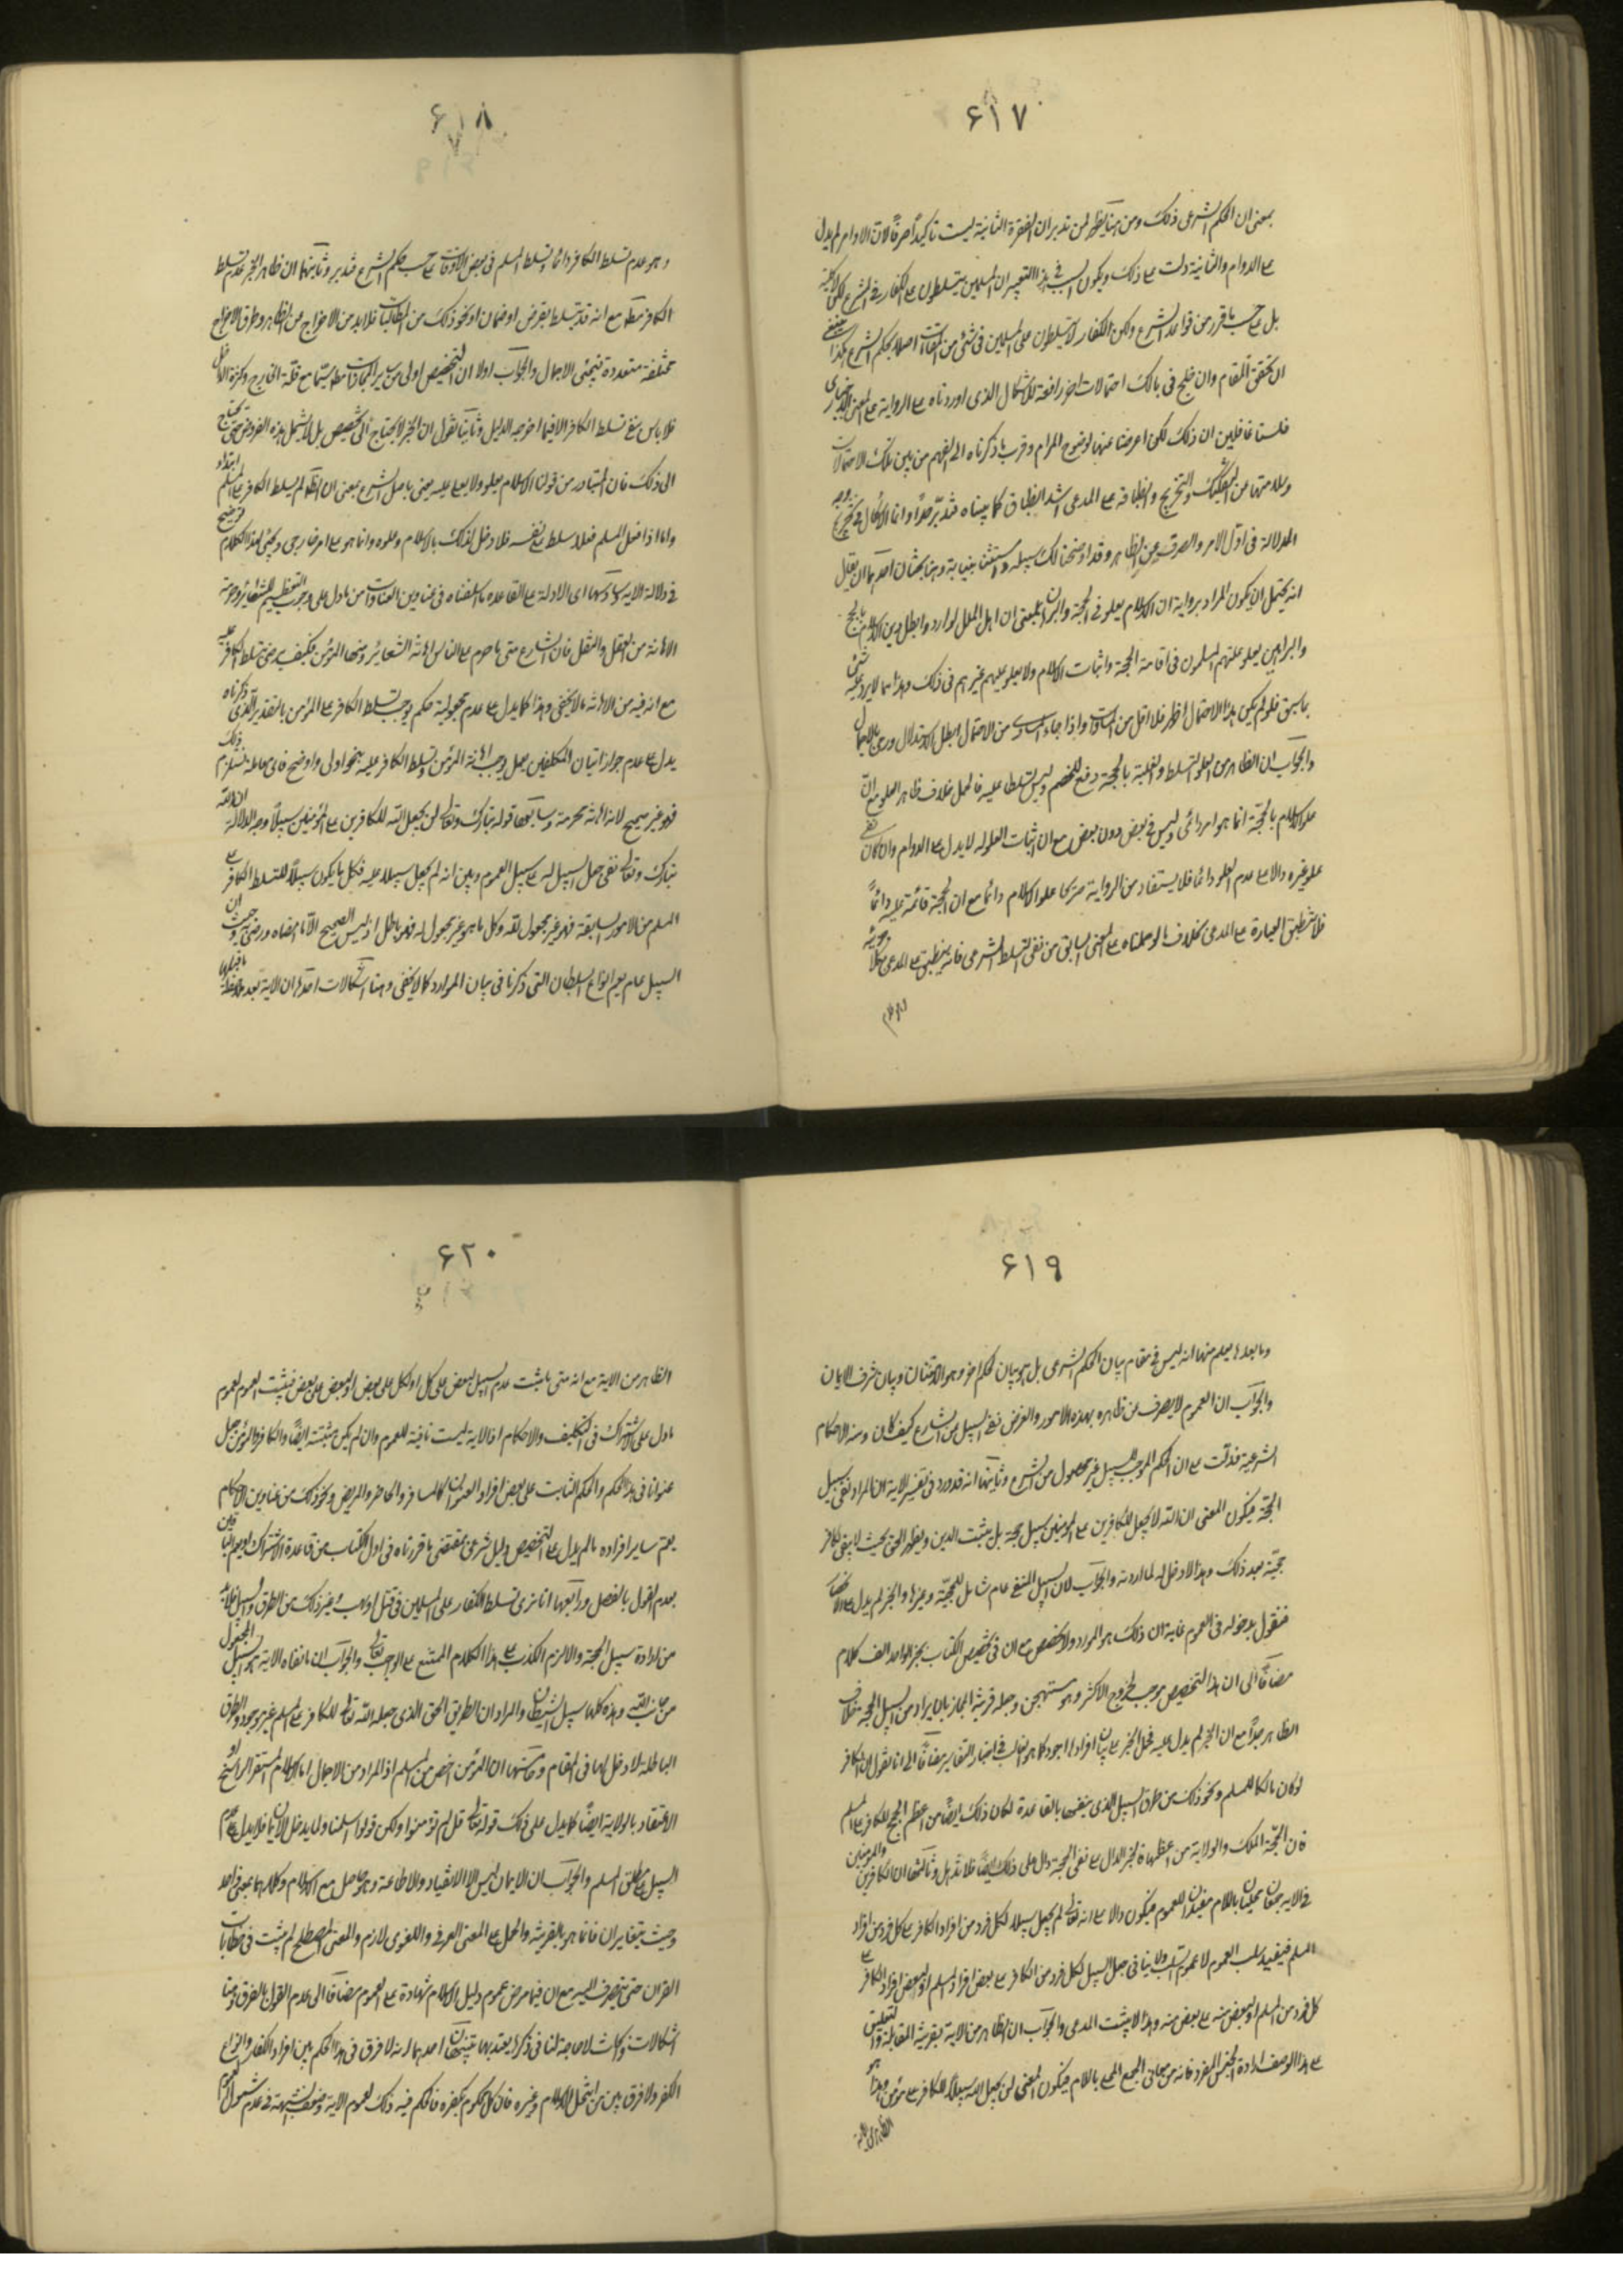 ۶۱۷
بمعنى ان الحكم الشرعى ذلك ومن هنا يظهر لمن تدبر ان الفقرة الثانية ليست تاكيداً صرفاً لان الاولى لم يدل
على الدوام والثانية دلت على ذلك ويكون السبب فى هذا التعبير ان المسلمين يتسلطون على الكفار فى الشرع لكن لا كلية
بل على حسب ما قرر من قواعد الشرع ولكن الكفار لا يتسلطون على المسلمين فى شئ من المقامات اصلا بحكم الشرع هكذا ينبغى
ان يحقق المقام وان خلج فى بالك احتمالات اخر رافعة للاشكال الذى اوردناه على الرواية على المعنى الاخبارى
فلسنا غافلين ان ذلك لكن اعرضنا عنها لوضوح المرام وقرب ما ذكرناه الى الفهم من بين تلك الاحتمالات
وسلامتها من التفكيك والتخريج وانطباقه على المدعى اشد انطباق كما بيناه فتدبر جداً وانما الاشكال فى تخريج وجه
الدلالة فى اول الامر والصرف عن الظاهر وقد اوضحنا لك سبيله وهنا بحثان احدهما ان يقال
انه يحتمل ان يكون المراد برواية ان الاسلام يعلو فى الحجة والبرهان بمعنى ان اهل الملل لو اراد وا ابطال دين الاسلام بالحجج
والبراهين يعلو عليهم المسلمون فى اقامة الحجة واثبات الاسلام ولا يعلو عليهم غيرهم فى ذلك وهذا مما لا يرد عليه شئ
مما سبق فلو لم يكن هذا الاحتمال اظهر فلا اقل من المساواة واذا جاء المساوى من الاحتمال ابطل الاستدلال ورمى بالاجمال
والجواب ان الظاهر من العلو التسلط والغلبة بالحجة دفع للخصم وليس تسلطا عليه فالحمل خلاف ظاهر العلو مع ان
علو الاسلام بالحجة انما هو امر دائمى وليس فى بعض دون بعض مع ان اثبات العلو له لا يدل على الدوام وان كان نفى
علو غيره دالا على عدم العلو دائما فلا يستفاد من الرواية صريحا علو الاسلام دائما مع ان الحجة قائمة عليه دائماً
فلا ينطبق العبارة على المدعى بخلاف ما لو حملناه على المعنى السابق من نفى التسلط الشرعى فانه ينطبق على المدعى
۶۱۸
وهو عدم تسلط الكافر دائما وتسلط المسلم فى بعض الاوقات على حسب حكم الشرع فتدبر وثانيهما ان ظاهر الخبر عدم تسلط
الكافر مطلقا مع انه قد يتسلط بقرض او ضمان او نحو ذلك من المطالبات فلا بد من الاخراج عن الظاهر وطرق الاخراج
مختلفة متعددة فيجئ الاجمال والجواب اولا ان التخصيص اولى من ساير المجازات مطلقا سيما مع قلة الخارج وكثرة الداخل
فلا باس بنفى تسلط الكافر الا فيما اخرجه الدليل وثانيا نقول ان الخبر لا يحتاج الى تخصيص بل لا يشمل هذه الفروض حتى يحتاج
الى ذلك فان المتبادر من قوله الاسلام يعلو ولا يعلى عليه يعنى باصل الشرع بمعنى ان الله لم يسلط الكافر على المسلم ابتداء
واما اذا فعل المسلم فعلا سلط على نفسه فلا دخل لذلك بالاسلام وعلوه وانما هو على امر خارجى ويجئ لهذا الكلام توضيح
فى دلالة الاية وسادسها اى الادلة على القاعدة ما اسلفناه فى عناوين العبادات من ما دل على وجوب التعظيم للشعائر وحرمة
الاهانة من العقل والنقل فان الشارع متى ما حرم على الناس اهانة الشعائر ومنها المؤمن فكيف يرضى بتسلط الكافر عليه
مع انه فيه من الاهانة ما لا يخفى وهذا كما يدل على عدم مجعولية حكم يوجب تسلط الكافر على المؤمن بالتقدير الذى ذكرناه
يدل على عدم جواز اتيان المكلفين بعمل يوجب اهانة المؤمن وتسلط الكافر عليه بنحو اولى واوضح فاى معاملة تستلزم ذلك
فهو غير صحيح لانه اهانة محرمة وسابعها قوله تبارك وتعالى لن يجعل الله للكافرين على المؤمنين سبيلاً وجه الدلالة ان الله
تبارك وتعالى نفى جعل السبيل له على سبيل العموم وبين انه لم يجعل سبيلا عليه فكل ما يكون سبيلاً للتسلط الكافر على
المسلم من الامور السابقة فهو غير مجعول لله وكل ما هو غير مجعول له فهو باطل اذ ليس الصحيح الا ما امضاه ورضى به وحيث ان
السبيل عام يعم انواع السلطان التى ذكرنا فى بيان الموارد كما لا يخفى وهنا اشكالات احدها ان الاية بعد ملاحظة ما قبلها
۶۱۹
وما بعدها يعلم منها انه ليس فى مقام بيان الحكم الشرعى بل هو بيان لحكم اخر وهو الامتنان وبيان شرف الايمان
والجواب ان العموم لا يصرف عن ظاهره بهذه الامور والغرض نفى السبيل من الشارع كيف كان ومنه الاحكام
الشرعية فدلت على ان الحكم الموجب للسبيل غير مجعول من الشرع وثانيها انه قد ورد فى تفسير الاية ان المراد نفى سبيل
الحجة فيكون المعنى ان الله لا يجعل للكافرين على المومنين سبيل حجة بل يثبت الدين ويظهر الحق بحيث لا يبقى لكافر
حجة بعد ذلك وهذا لا دخل له لما اردته والجواب لان السبيل المنفى عام شامل للحجة وغيرها والخبر لم يدل على الانحصار
فنقول بدخوله فى العموم غاية ان ذلك هو المورد ولا تخصيص مع ان فى تخصيص الكتاب بخبر الواحد الف كلام
مضافاً الى ان هذا التخصيص موجب لخروج الاكثر وهو مستهجن وجعله قرينة المجاز بان يراد من السبيل الحجة خلاف
الظاهر جداً مع ان الخبر لم يدل عليه فحمل الخبر على بيان افراد اجود كما هو الغالب فى اخبار التفاسير مضافاً الى انا نقول ان الكافر
لو كان مالكا للمسلم ونحو ذلك من طرق السبيل الذى ننفيها بالقاعدة لكان ذلك ايضاً من اعظم الحجج للكافر على المسلم
فان الحجة الملك والولاية من اعظمها فالخبر الدال على نفى الحجة دال على ذلك ايضاً فلا تذهل وثالثها ان الكافرين والمومنين
فى الاية جمعان محليان باللام مفيدان للعموم فيكون دالا على انه تعالى لم يجعل سبيلا لكل فرد من افراد الكافر على كل فرد من افراد
المسلم فيفيد سلب العموم لا عموم السلب ولا ينافى جعل السبيل لكل فرد من الكافر على بعض افراد المسلم او لبعض افراد الكافر على
كل فرد من المسلم او لبعض منه على بعض منه وهذا لا يثبت المدعى والجواب ان الظاهر من الاية بقرينة المقابلة والتعليق
على هذا الوصف ارادة الجنس المفرد فانه من معانى الجمع المحلى باللام فيكون المعنى لن يجعل الله سبيلاً للكافر على مؤمن وهذا هو
۶۲۰
الظاهر من الاية مع انه متى ما ثبت عدم السبيل لبعض على كل او لكل على بعض او لبعض على بعض فيثبت العموم لعموم
ما دل على الاشتراك فى التكليف والاحكام اذ الاية ليست نافية للعموم وان لم يكن مثبتة ايضاً والكافر والمؤمن جعل
عنوانا فى هذا الحكم والحكم الثابت على بعض افراد العنوان كالمسافر والحاضر والمريض ونحو ذلك من عناوين الاحكام
يعم ساير افراده ما لم يدل على التخصيص دليل شرعى بمقتضى ما قررناه فى اول الكتاب من قاعدة الاشتراك او يعم الباقين
بعدم القول بالفصل ورابعها انا نرى تسلط الكفار على المسلمين فى قتل او نهب وغير ذلك من الطرق والسبيل فلا بد
من ارادة سبيل الحجة والا لزم الكذب على هذا الكلام الممتنع على الواجب تعالى والجواب ان ما نفاه الاية هو السبيل المجعول
من جانب الله وهذه كلها سبيل الشيطان والمراد ان الطريق الحق الذى جعله الله تعالى للكافر على المسلم غير موجود والطرق
الباطلة لا دخل لها فى المقام وخامسها ان المؤمن اخص من المسلم اذ المراد من الاجمال اما الاسلام المستقر الراسخ او
الاعتقاد بالولاية ايضاً كما يدل على ذلك قوله تعالى قل لم تؤمنوا ولكن قولوا اسلمنا ولما يدخل الايمان فلا يدل على عدم
السبيل على مطلق المسلم والجواب ان الايمان ليس الا الانقياد والاطاعة وهو حاصل مع الاسلام وكلاهما بمعنى واحد
وحيث يتغايران فانما هو بالقرينة والحمل على المعنى العرفى واللغوى لازم والمعنى المصطلح لم يثبت فى خطابات
القران حتى ينصرف اليه مع ان فيما مر من عموم دليل الاسلام شهادة على العموم مضافاً الى عدم القول بالفرق وهنا
اشكالات ونكات لا حاجة لنا فى ذكرها بعتد بها تنبيهان احدهما انه لا فرق فى هذا الحكم بين افراد الكفار وانواع
الكفر ولا فرق بين من انتحل الاسلام وغيره فان كل محكوم بكفره فالحكم فيه ذلك لعموم الاية وضعف الشبهة فى عدم شمول